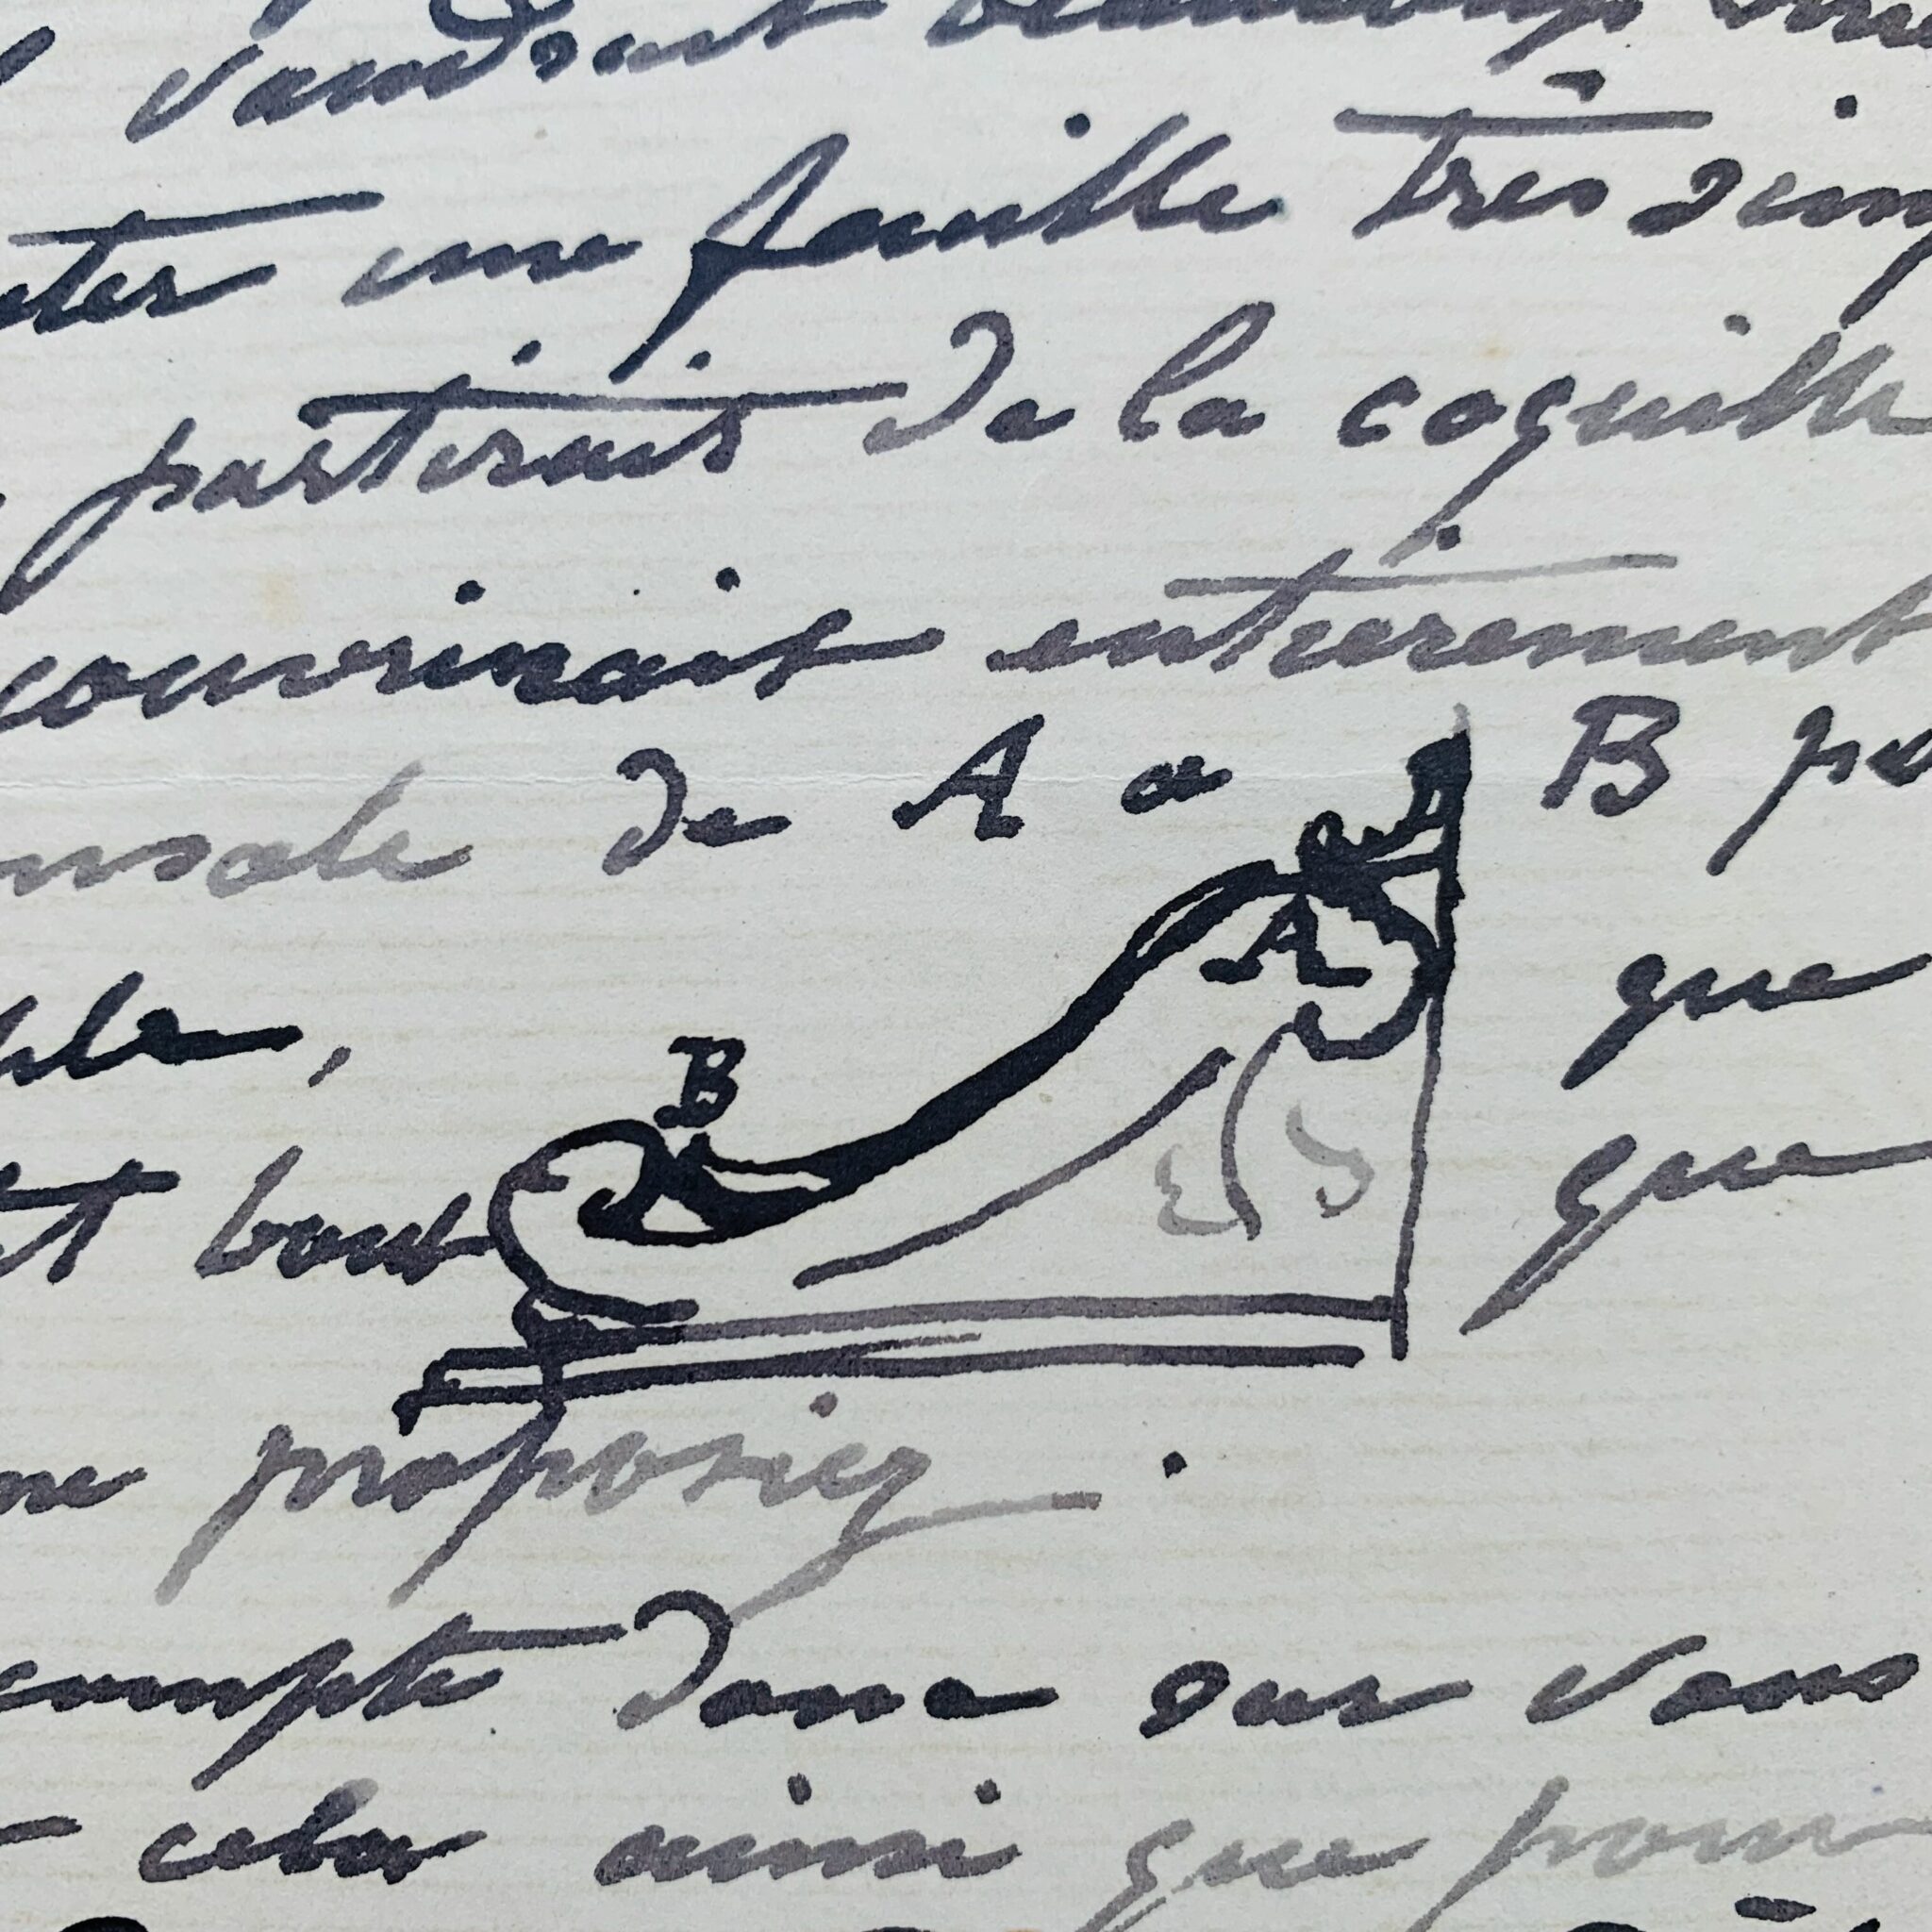 vaudrait beaucoup
une feuille très
partirait de la coquille
couvrirait entièrement
de A a B
A
B que
bout que
me proposiez .
compte donc sur vous
cela ainsi que pour